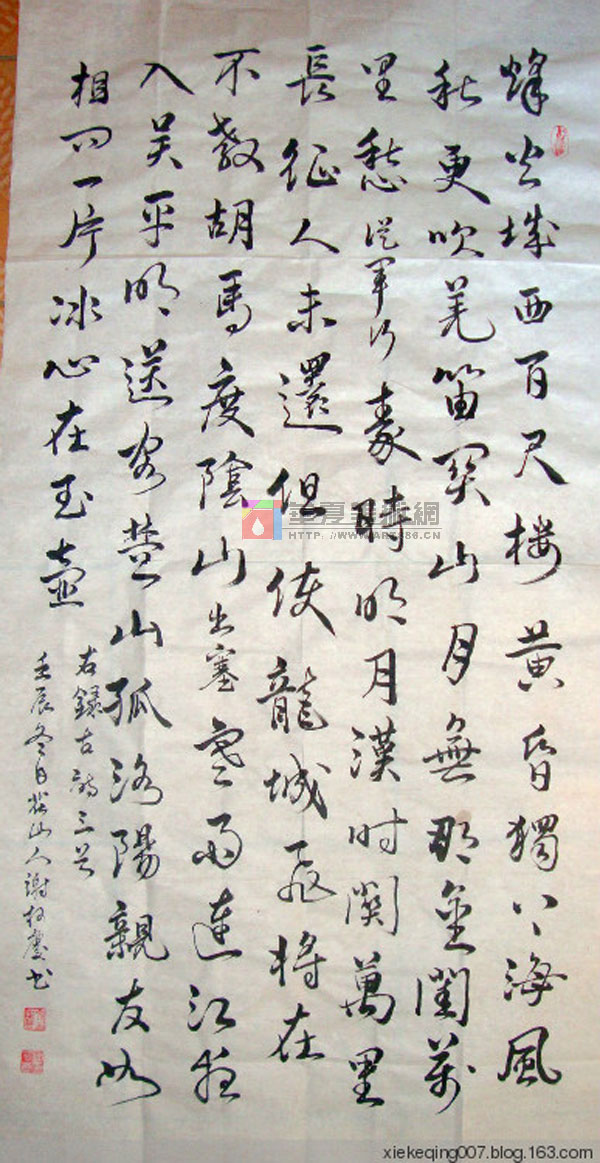 烽火城西百尺楼黄昏獨上海風
秋更吹羌笛関山月無那金閨萬
里愁從軍行秦時明月漢时関萬里
長征人未還但使龍城飛将在
不教胡馬度陰山出塞寒雨連江夜
入吴平明送客楚山孤洛陽親友如
相问一片冰心在玉壶
右録古詩三首
壬辰冬日山人謝慶书
xiekeqing007.blog.163.com